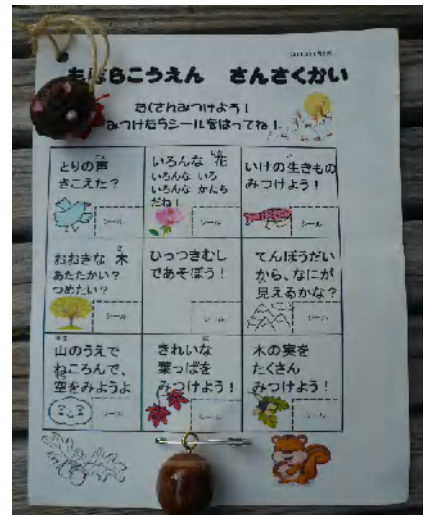 もばらこうえん さんさくかい
たくさんみつけよう!
みつけたらシールをはってね!
とりの声
きこえた?
シール
いろんな 花
いろんな いろ
いろんな かたち
だね!
シール
いけの生きもの
みつけよう!
シール
おおきな 木
あたたかい?
つめたい?
シール
ひっつきむし
であそぼう!
シール
てんぼうだい
から、なにが
見えるかな?
シール
山のうえで
ねころんで、
空をみようよ
シール
きれいな
葉っぱを
みつけよう!
シール
木の実を
たくさん
みつけよう!
シール